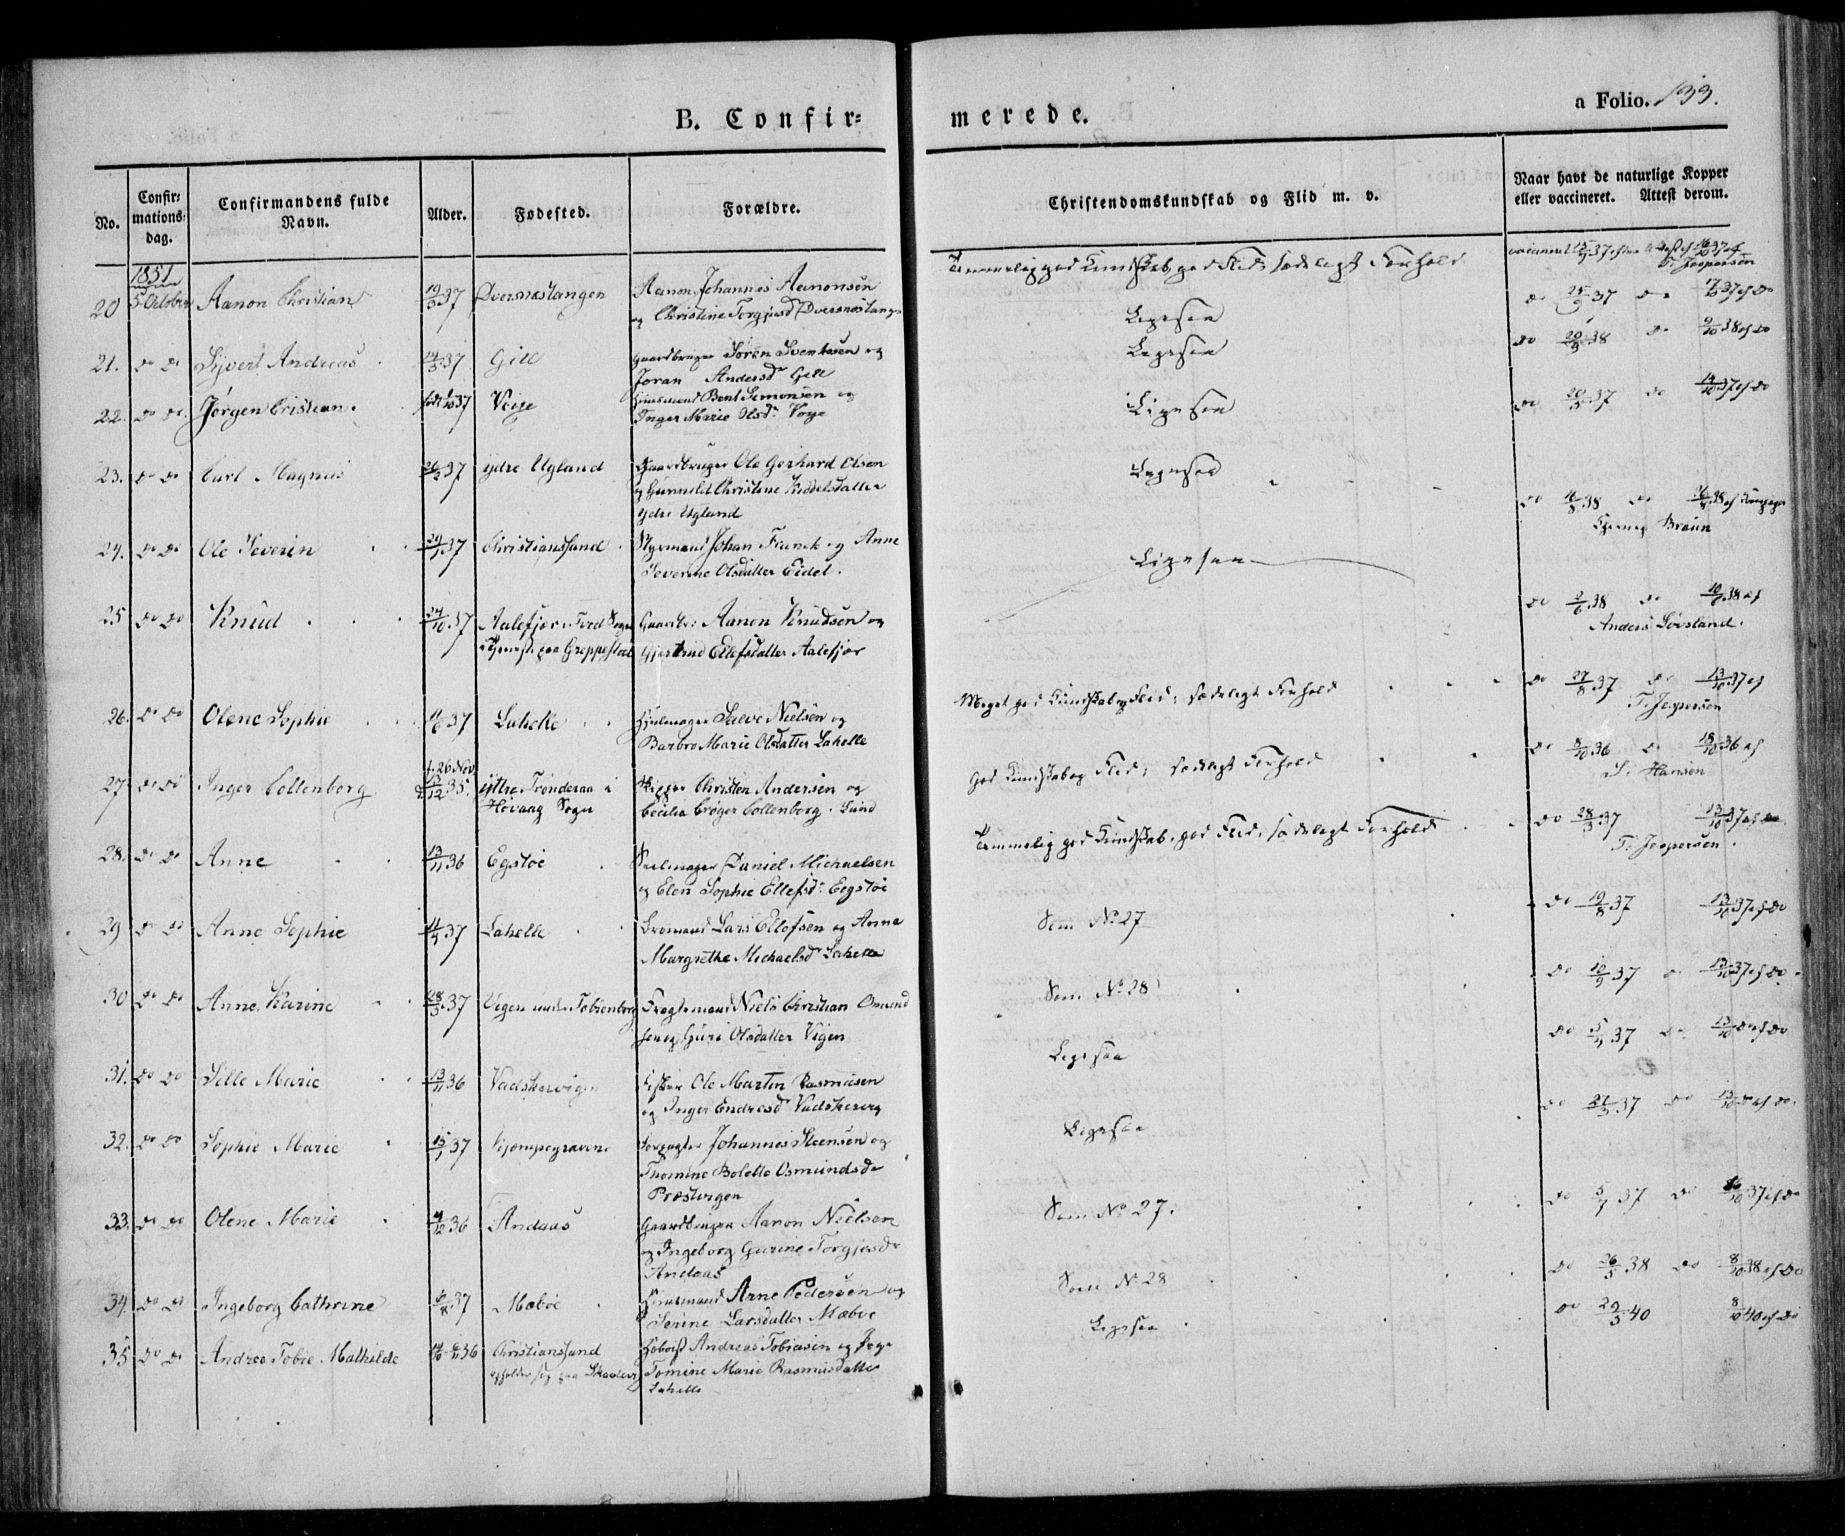 B. Confir=
merede.
a Folio. 133.
No.
Confir-
mations-
dag.
Confirmandens fulde
Navn.
Alder.
Fødested.
Forældre.
Christendomskundskab og Flid m. v.
Naar havt de naturlige Kopper
eller vaccineret. Attest derom.
1851
20 5 October Aanon Christian 19/3 37 Dversnæstangen Aanon Johannes Aanonsen
og Christine Torgjusd Dversnæstangen
Temmelig god Kundskab, god Flid, sædeligt Forhold
T. Jespersen
21. do do Syvert Andreas 14/5 37 Gill Gaardbruger Søren Svenhsen og
Joran Andersd Gill
Ligesaa do 25/9 37 do 17/10 37 af do
22. do do Jørgen Cristian Voige Huusmand Bent Simonsen og
Inger Marie Olsd. Voge
Ligesaa do 20/9 38 do 9/10 38 af do
23. do do Carl Magnus 26/2 37 ydre Ugland Gaardbruger Ole Gerhard Olsen
og Gunnild Christine Kiddelsdatter
ydre Ugland
Ligesaa do 20/5 37 do 14/10 37 af do
24. do do Ole Severin 29/7 37 Christianssand Styrmand Johan Franck og Anne
Severine Olsdatter Eidet.
Ligesaa do 38 do 38 af
Braun
25 do do Knud 24/10 37 Aalefjær i Tved Sogn Gaardbr: Aanon Knudsen og
paa Greppestøl Gjertrud Ellefsdatter Aalefjær
Ligesaa do 2/6 38 do 10/6 38 af
Anders Løvsland.
26. do do Olene Sophie 37 Lahelle Hjulmager Salve Nielsen og
Barbro Marie Olsdatter Lahelle
Meget god Kundskab og Flid; sædeligt Forhold do 27/8 37 do 13/10 37 af
T. Jespersen
27 do do Inger Collenborg f. 26 Nov
d 13/12 35. yttre Trønderaa i Skipper Christen Andersen og
Høvaag Sogn Cecilia Crøger Collenborg. Lund
God Kundskab og Flid; sædeligt Forhold do 8/10 36 do 18/10 36 af
S. Hansen
28. do do Anne 13/11 36 Egstøe Seilmager Daniel Michaelsen
og Elen Sophie Ellefsd: Eegstøe
Temmelig god Kundskab, god Flid, sædeligt Forhold do 28/3 37 13/10 37 af do
T. Jespersen.
29 do do Anne Sophie 37 Lahelle Lars Ellefsen og Anne
Margrethe Michaelsd. Lahelle
Som No 27 do 19/8 37 13/10 37 af do
30 do do Anne Karine 28/3 37 Vigen under Tobienborg Fragtemand Niels Christian Osmund
sen og Guri Olsdatter Vigen
Som No 28 do 10/9 37 13/10 37 af do
31. do do Sille Marie 13/11 36 Vadskervigen Fisker Ole Martin Rasmusen
og Inger Endresd Vadskervig
Ligesaa do 5/9 37 do 13/10 do af do
32. do do Sophie Marie 15/1 37 Kjømpegraven Forpagter Johannes Steensen og
Thomine Bolette Osmundsdr
Præstvigen
Ligesaa do 21/5 37 do 13/10 do af do
33. do do Olene Marie 4/12 36 Andaas Gaardbruger Aanon Nielsen
og Ingeborg Gurine Torgjusdr
Andaas
Som No 27. do 5/7 37 do 37 af do
34. do do Ingeborg Cathrine 6/8 37 Mæbøe Huusmand Arne Pedersen og
Serine Larsdatter Mæbøe
Som No 28 do 26/5 38 do 8/10 38 af do
35 do do Andrea Tobie Mathilde 36 Christianssand Hoboist Andreas Tobiasen og
opholder sig paa Tomine Marie Rasmusdatter
Lahelle
Ligesaa do 29/5 40 8/10 40 af do